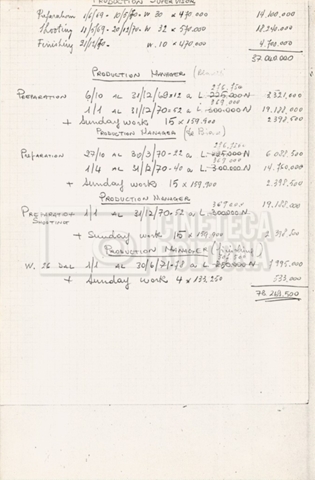 PRODUCTION SUPERVISOR
Preparation 1/6/69 - 10/5/70 - W 30 x 470,000 14,100,000
Shooting 11/5/69 - 20/12/70 - W 32 x 570,000 18,240,000
Finishing 21/12/70 - W. 10 x 470,000 4,700,000
37,040,000
PRODUCTION MANAGER
276,750
PREPARATION 6/10 AL 31/12/69 12 a L 225,000 N 3,321,000
369,000
1/1 AL 31/12/70 = 52 a L 300,000 N 19,188,000
+ Sunday work 15 x 159,900 2,398,500
PRODUCTION MANAGER
276,750
PREPARATION 27/10 AL 30/3/70 - 22 a L 225,000 N 6,088,500
369,000
1/4 AL 31/12/70 - 40 a L 300,000 N 14,760,000
+ Sunday work 15 x 159,900 2.398,500
PRODUCTION MANAGER
369,000
PREPARATION 1/1 AL 31/12/70 = 52 a L 300,000 N 19,188,000
SHOOTING
+ Sunday work 15 x 159,900 2,398,500
PRODUCTION MANAGER (finishing)
W. 26 DAL 1/1 AL 30/6/71 a L 250,000 N 7,995,000
+ Sunday work 4 x 133,250 533,000
78,269,500
CINETECA
BOLOGNA